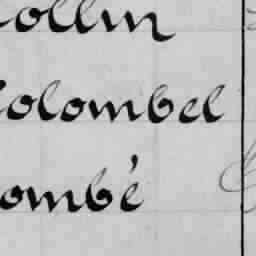 Collin
Colombel
ombé